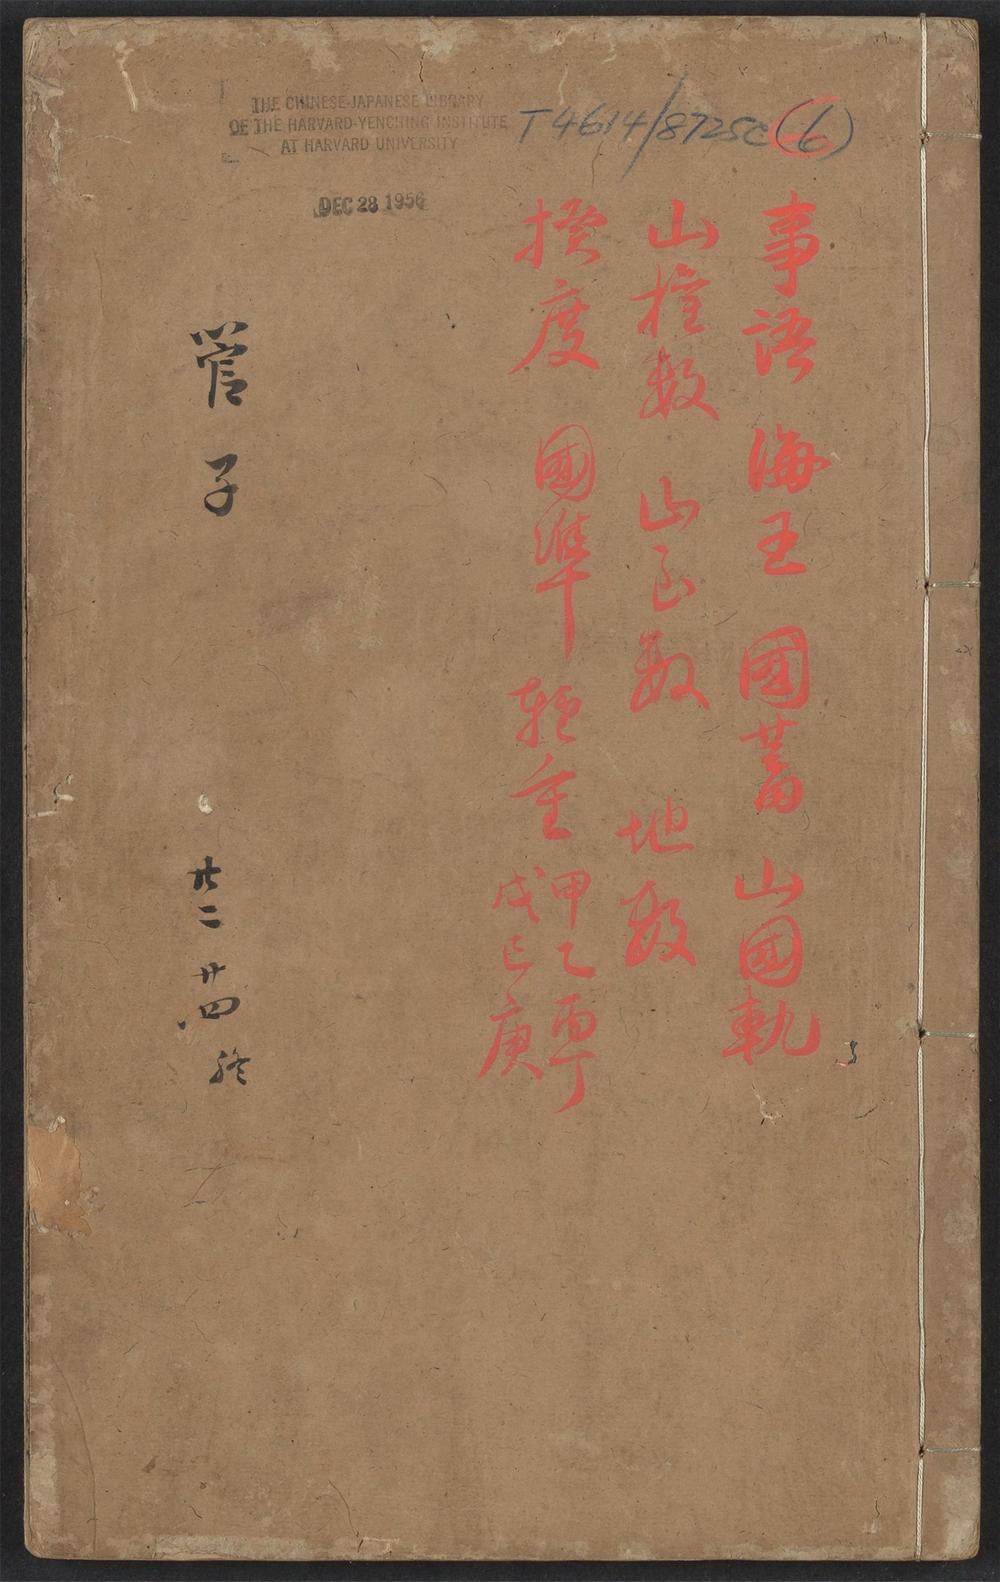 THE CHINESE-JAPANESE LIBRARY
OF THE HARVARD-YENCHING INSTITUTE
AT HARVARD UNIVERSITY
DEC 28 1956
T4614/8725c(6)
事語 海王 國蓄 山國軌
山權數 山至數 地數
揆度 國準 輕重 甲乙丙丁
戊己庚
管子
廿二 廿四 終